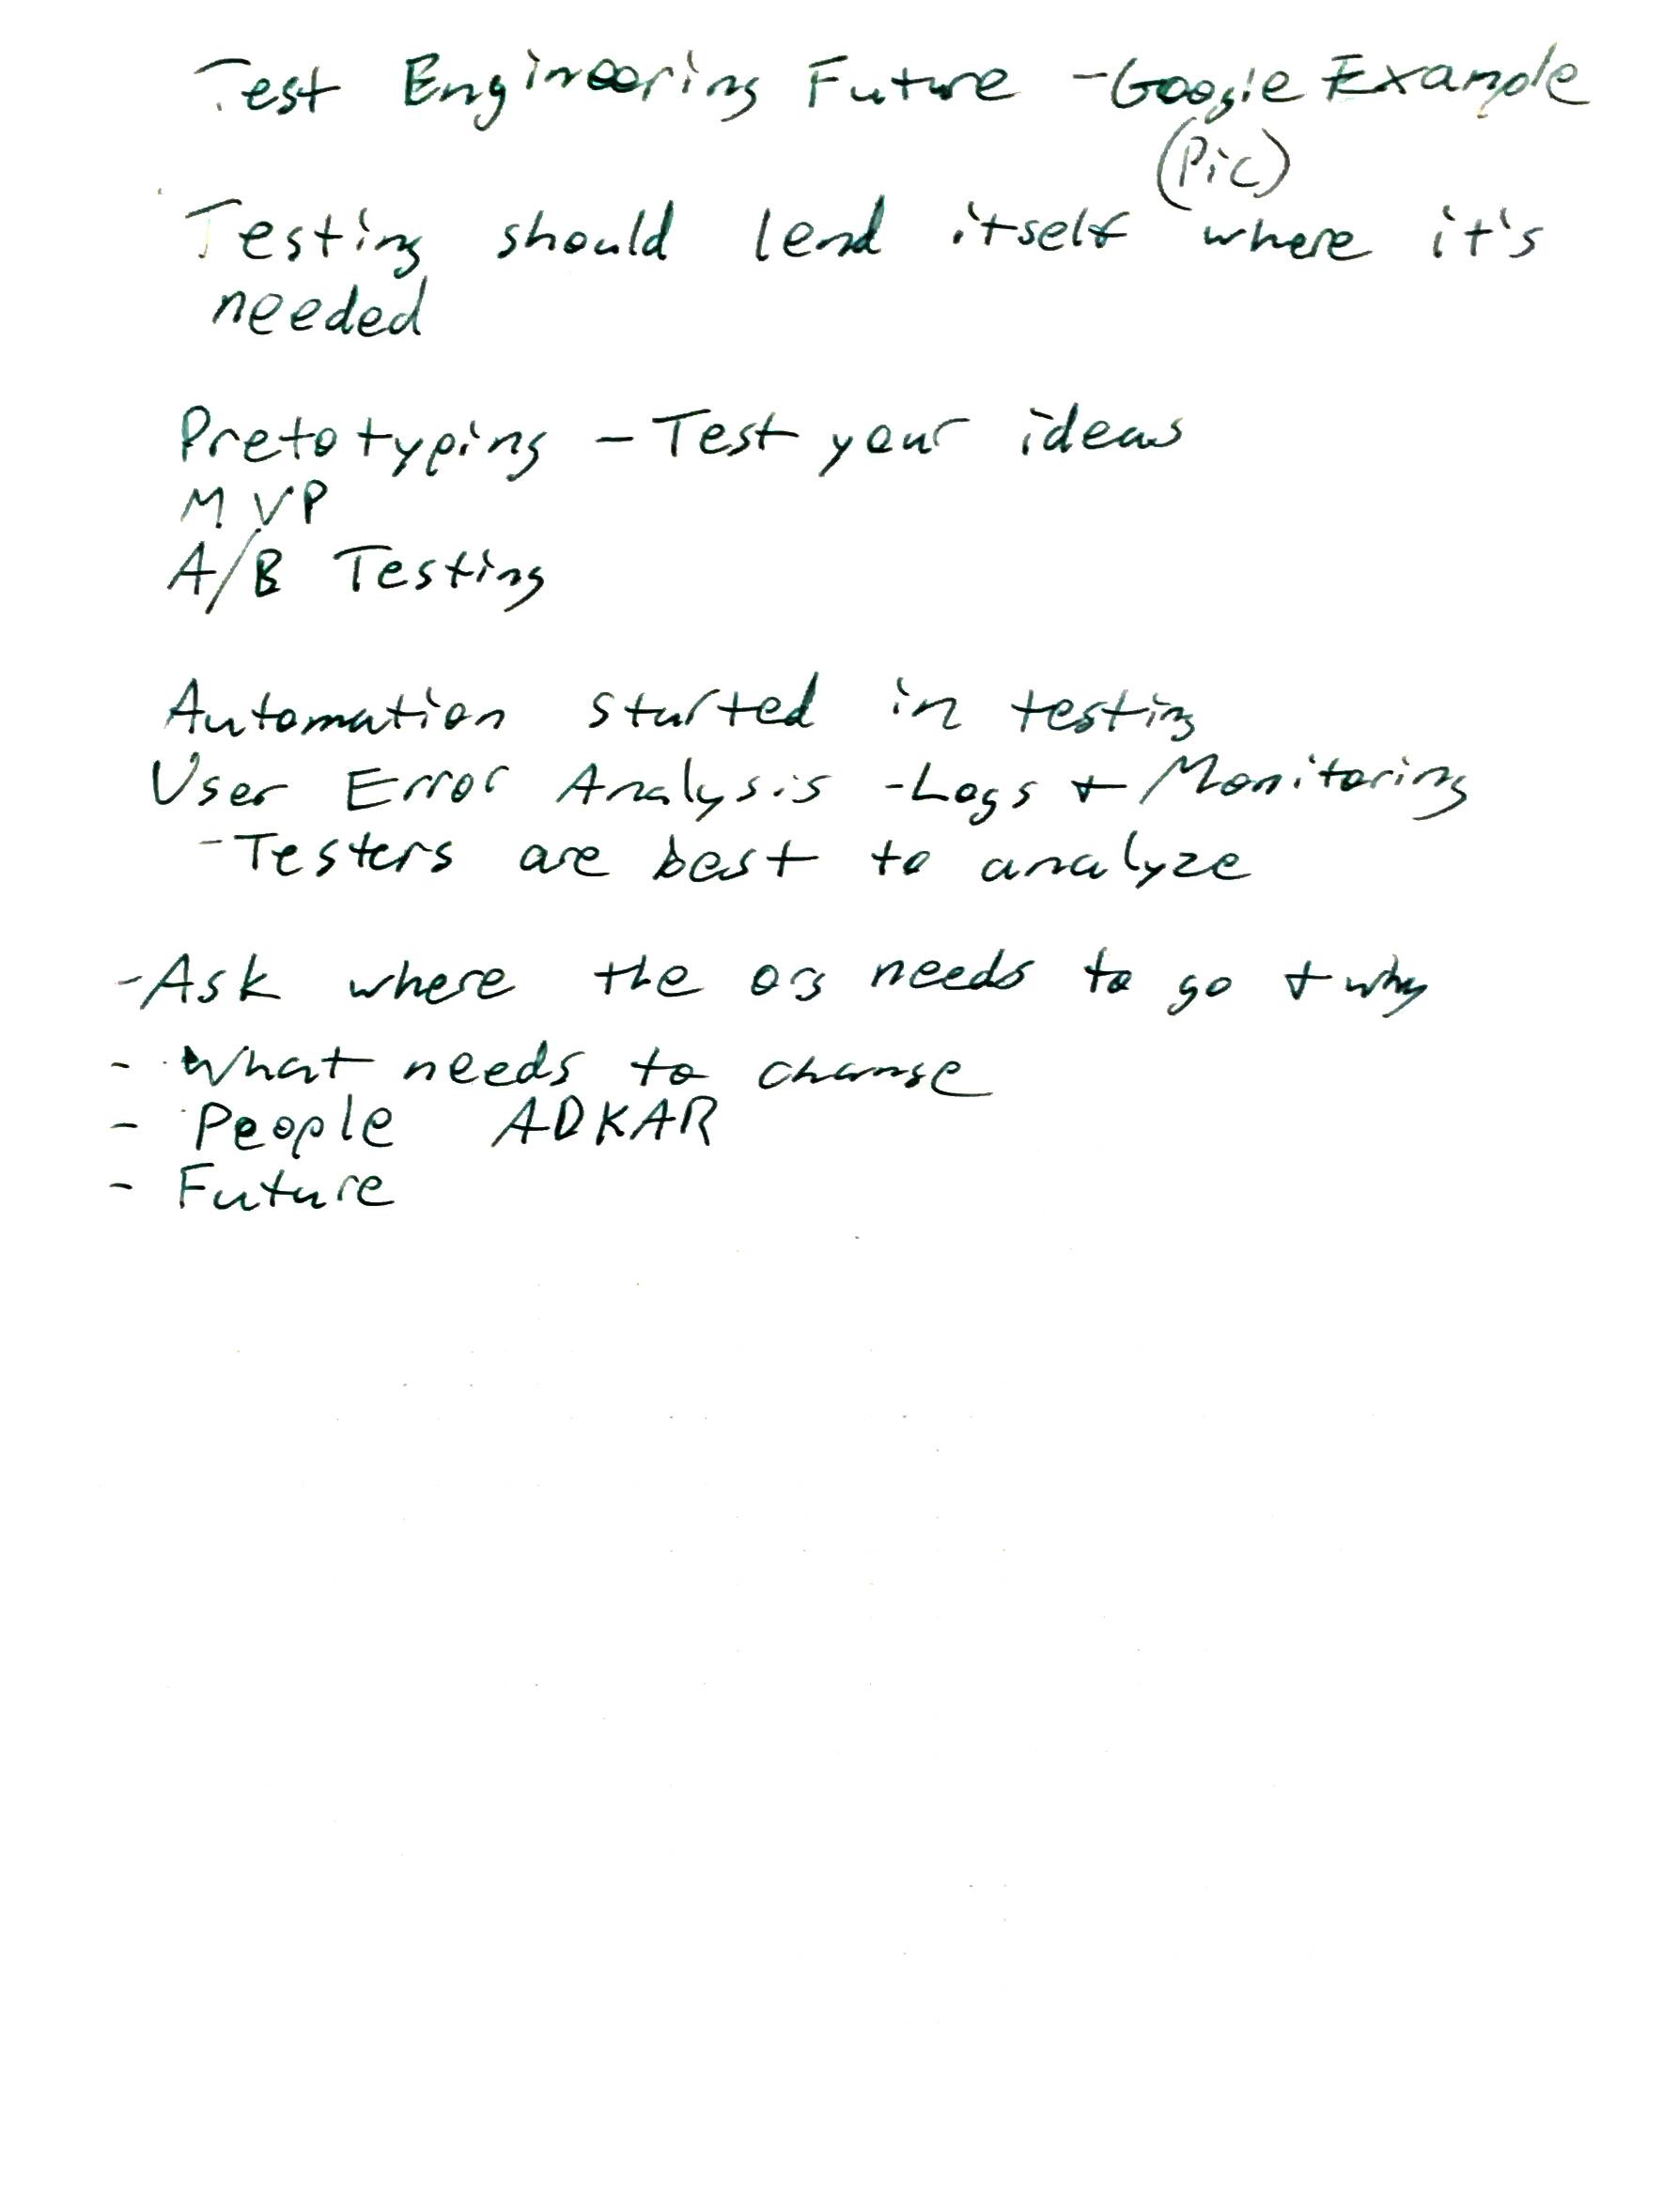 Test Engineering Future - Google Example
(Pic)
Testing should lend itself where it's
needed
Pretotyping - Test your ideas
MVP
A/B Testing
Automation started in testing
User Error Analysis - Logs + Monitoring
- Testers are best to analyze
- Ask where the org needs to go + why
- What needs to change
- People ADKAR
- Future